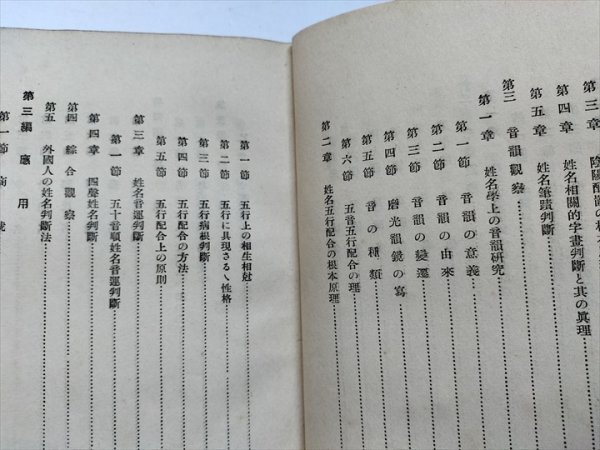 第三章 陰陽配置の根本
第四章 姓名相關的字畫判斷と其の眞理
第五章 姓名筆蹟判斷
第三 音韻觀察
第一章 姓名學上の音韻研究
第一節 音韻の意義
第二節 音韻の由來
第三節 音韻の變遷
第四節 磨光韻鏡の寫
第五節 音の種類
第六節 五音五行配合の理
第二章 姓名五行配合の根本原理
第一節 五行上の相生相剋
第二節 五行に具現さるゝ性格
第三節 五行病根判斷
第四節 五行配合の方法
第五節 五行配合上の原則
第三章 姓名音運判斷
第一節 五十音順姓名音運判斷
第四章 四聲姓名判斷
第四 綜合觀察
第五 外國人の姓名判斷法
第三編 應用
第一節